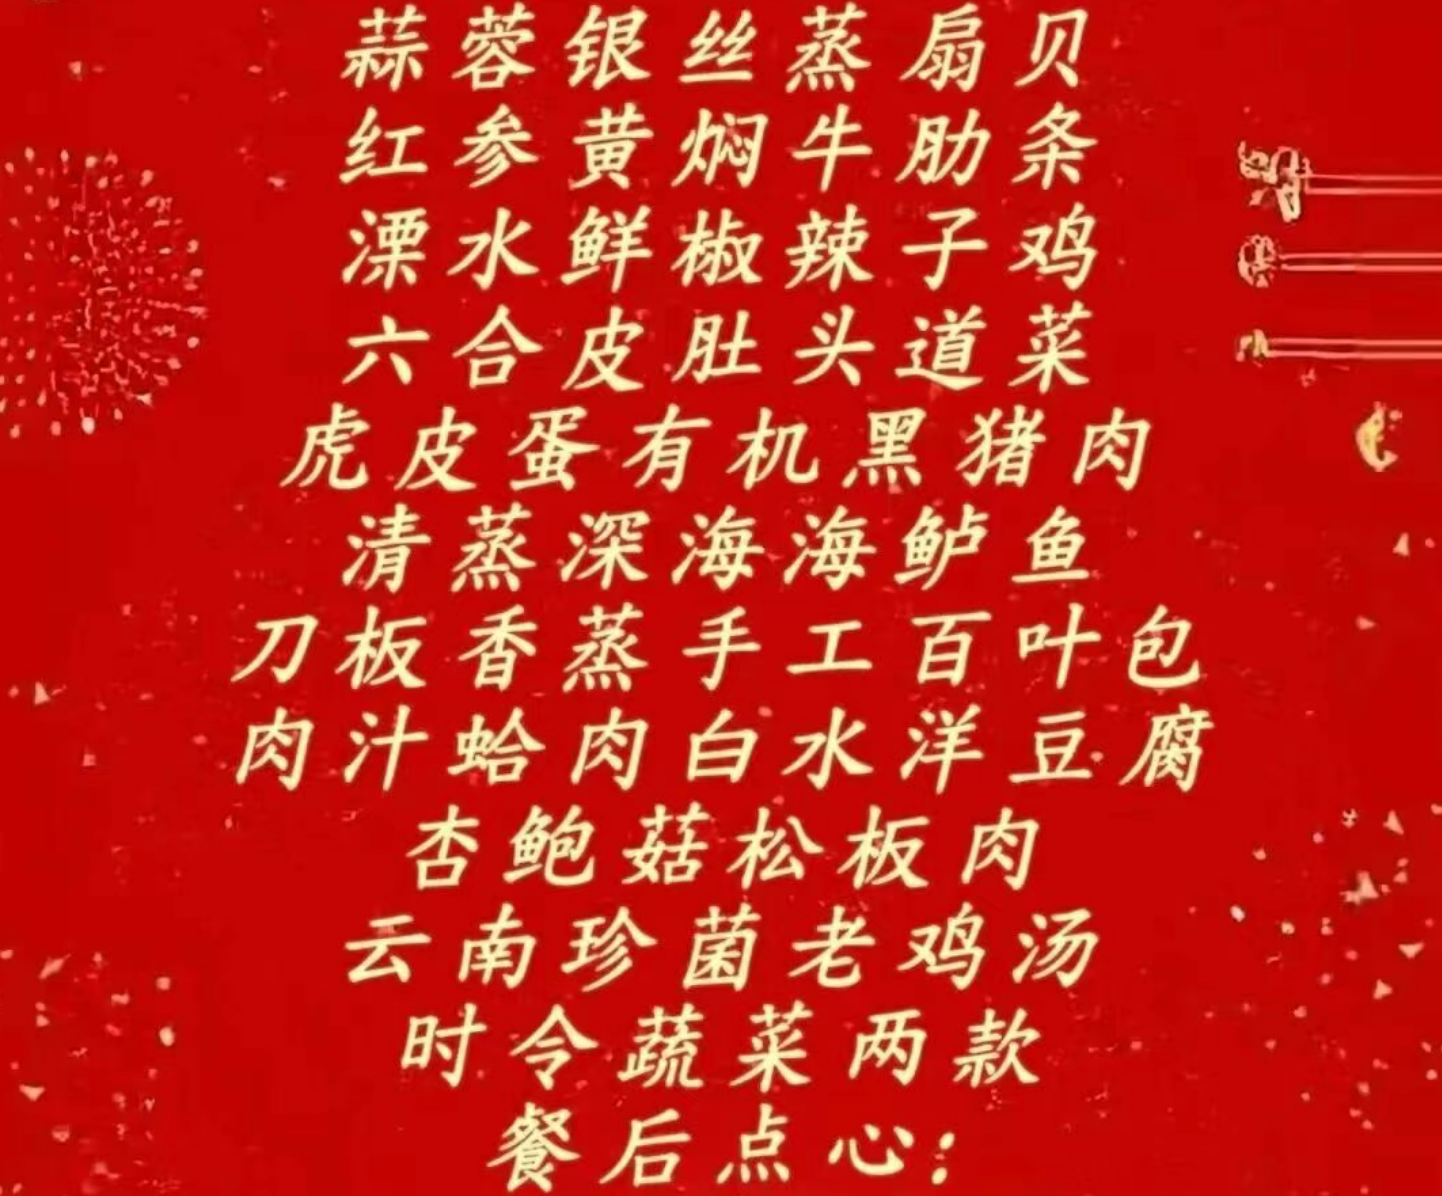 蒜蓉银丝蒸扇贝
红参黄焖牛肋条
溧水鲜椒辣子鸡
六合皮肚头道菜
虎皮蛋有机黑猪肉
清蒸深海海鲈鱼
刀板香蒸手工百叶包
肉汁蛤肉白水洋豆腐
杏鲍菇松板肉
云南珍菌老鸡汤
时令蔬菜两款
餐后点心：